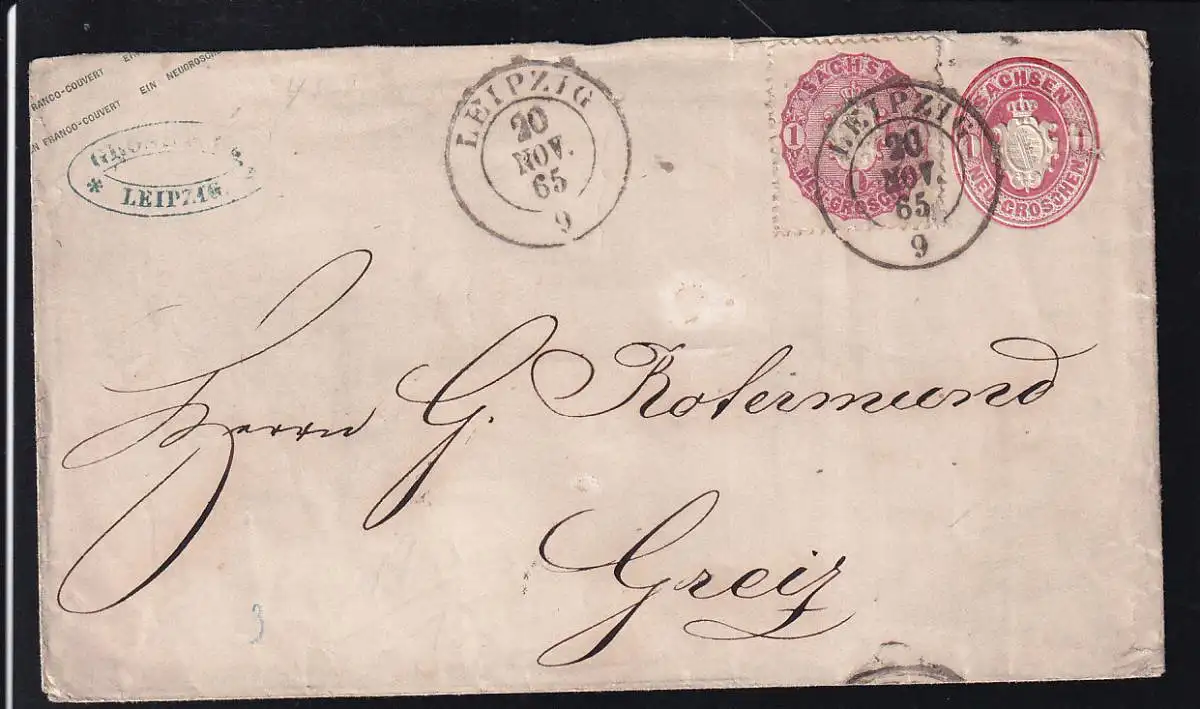 FRANCO-COUVERT EIN NEUGROSCH
FRANCO-COUVERT EIN NEUGROSCH
EIN FRANCO-COUVERT
* LEIPZIG.
LEIPZIG
20
NOV.
65
9
SACHSEN
1 1
NEUGROSCHEN
LEIPZIG
20
NOV.
65
9
SACHSEN
1 1
NEUGROSCHEN
Herrn G. Rotermund
Greiz
3